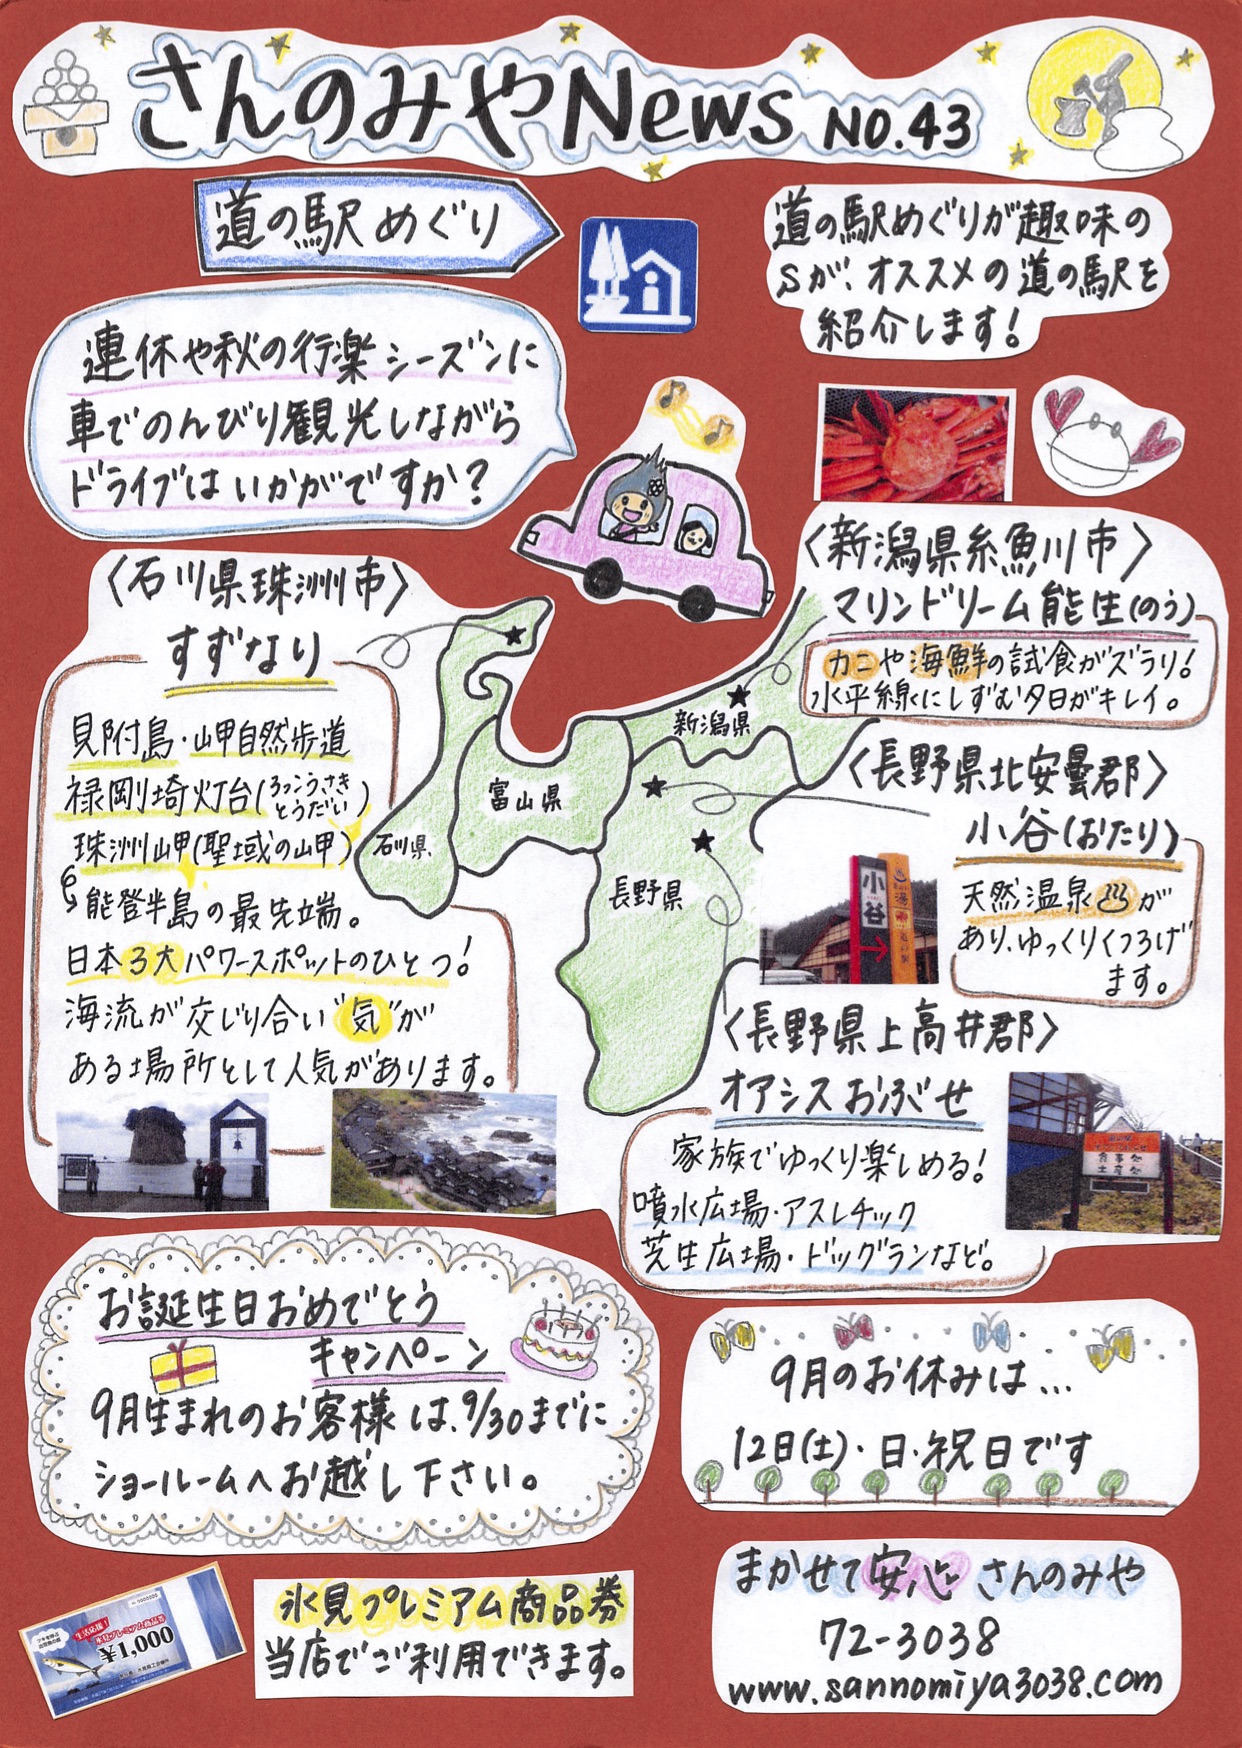 さんのみやNews NO.43
道の駅めぐり
道の駅めぐりが趣味の
Sが、オススメの道の駅を
紹介します!
連休や秋の行楽シーズンに
車でのんびり観光しながら
ドライブはいかがですか?
〈石川県珠洲市〉
すずなり
見附島・岬自然歩道
禄剛埼灯台(ろっこうさき
とうだい)
珠洲岬(聖域の岬)
能登半島の最先端。
日本3大パワースポットのひとつ!
海流が交じり合い"気"が
ある場所として人気があります。
〈新潟県糸魚川市〉
マリンドリーム能生(のう)
カニや海鮮の試食がズラリ!
水平線にしずむ夕日がキレイ。
新潟県
富山県
石川県
長野県
〈長野県北安曇郡〉
小谷(おたり)
天然温泉♨が
あり、ゆっくりくつろげ
ます。
小谷
湯
道の駅
〈長野県上高井郡〉
オアシスおぶせ
家族でゆっくり楽しめる!
噴水広場・アスレチック
芝生広場・ドッグランなど。
食事処
土産処
お誕生日おめでとう
キャンペーン
9月生まれのお客様は、9/30までに
ショールームへお越し下さい。
9月のお休みは...
12日(土)・日・祝日です
生活応援!
氷見プレミアム商品券
¥1,000
氷見プレミアム商品券
当店でご利用できます。
まかせて安心 さんのみや
72-3038
www.sannomiya3038.com